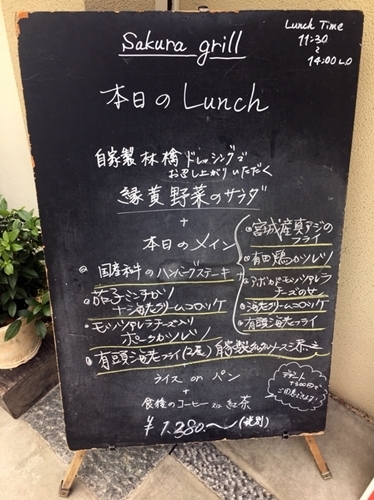 Sakura grill
Lunch Time
11:30
~
14:00 L.O
本日の Lunch
自家製 林檎 ドレッシングで
お召し上がりいただく
緑黄野菜のサラダ
+
本日のメイン
国産和牛のハンバーグステーキ
茄子ミンチカツ
+海老クリームコロッケ
モッツァレラチーズ入り
ポークカツレツ
有頭海老フライ(2尾) 自家製タルタルソース添え
宮城産真アジの
フライ
カツレツ
アボカドモッツァレラ
チーズのせ
海老クリームコロッケ
有頭海老フライ
ライス or パン
+
食後のコーヒー or 紅茶
¥1,380.~(税別)
+300円で
ご用意できます!